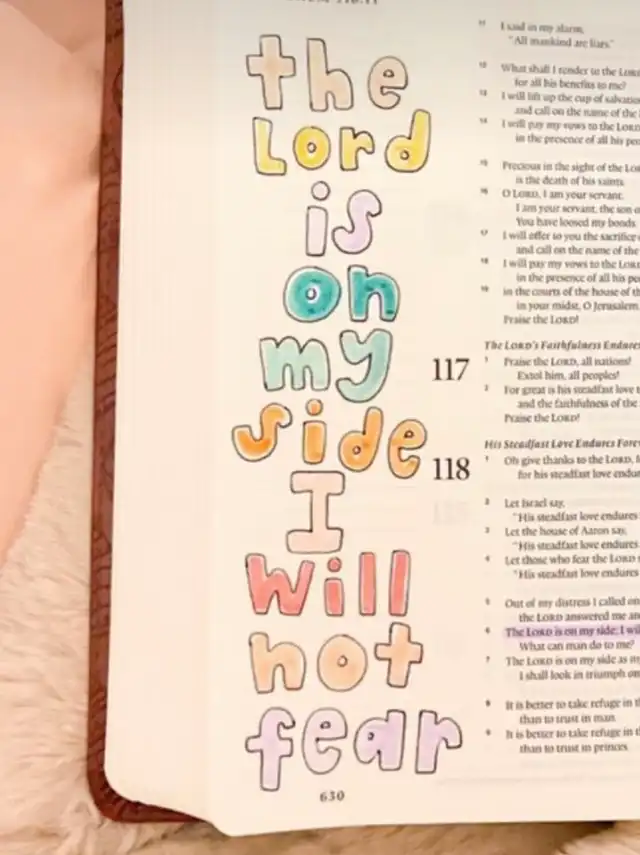 the
Lord
is
on
my
side
I
will
not
fear
630
11 I said in my alarm,
"All mankind are liars."
12 What shall I render to the LORD
for all his benefits to me?
13 I will lift up the cup of
and call on the name of the
14 I will pay my vows to the LORD
in the presence of all his
15 Precious in the sight of the
is the death of his saints.
16 O LORD, I am your servant,
I am your servant, the son
You have loosed my bonds.
17 I will offer to you the sacrifice
and call on the name of the
18 I will pay my vows to the LORD
in the presence of all his
19 in the courts of the house of
in your midst, O Jerusalem.
Praise the LORD!
The LORD's Faithfulness Endures
117
1 Praise the LORD, all nations!
Extol him, all peoples!
2 For great is his steadfast love
and the faithfulness of the
Praise the LORD!
His Steadfast Love Endures
118
1 Oh give thanks to the LORD,
for his steadfast love
2 Let Israel say,
"His steadfast love endures
3 Let the house of Aaron say,
"His steadfast love endures
4 Let those who fear the LORD
"His steadfast love endures
5 Out of my distress I called
the LORD answered me
6 The LORD is on my side; I
What can man do to me?
7 The LORD is on my side as
I shall look in triumph on
8 It is better to take refuge in
than to trust in man.
9 It is better to take refuge in
than to trust in princes.